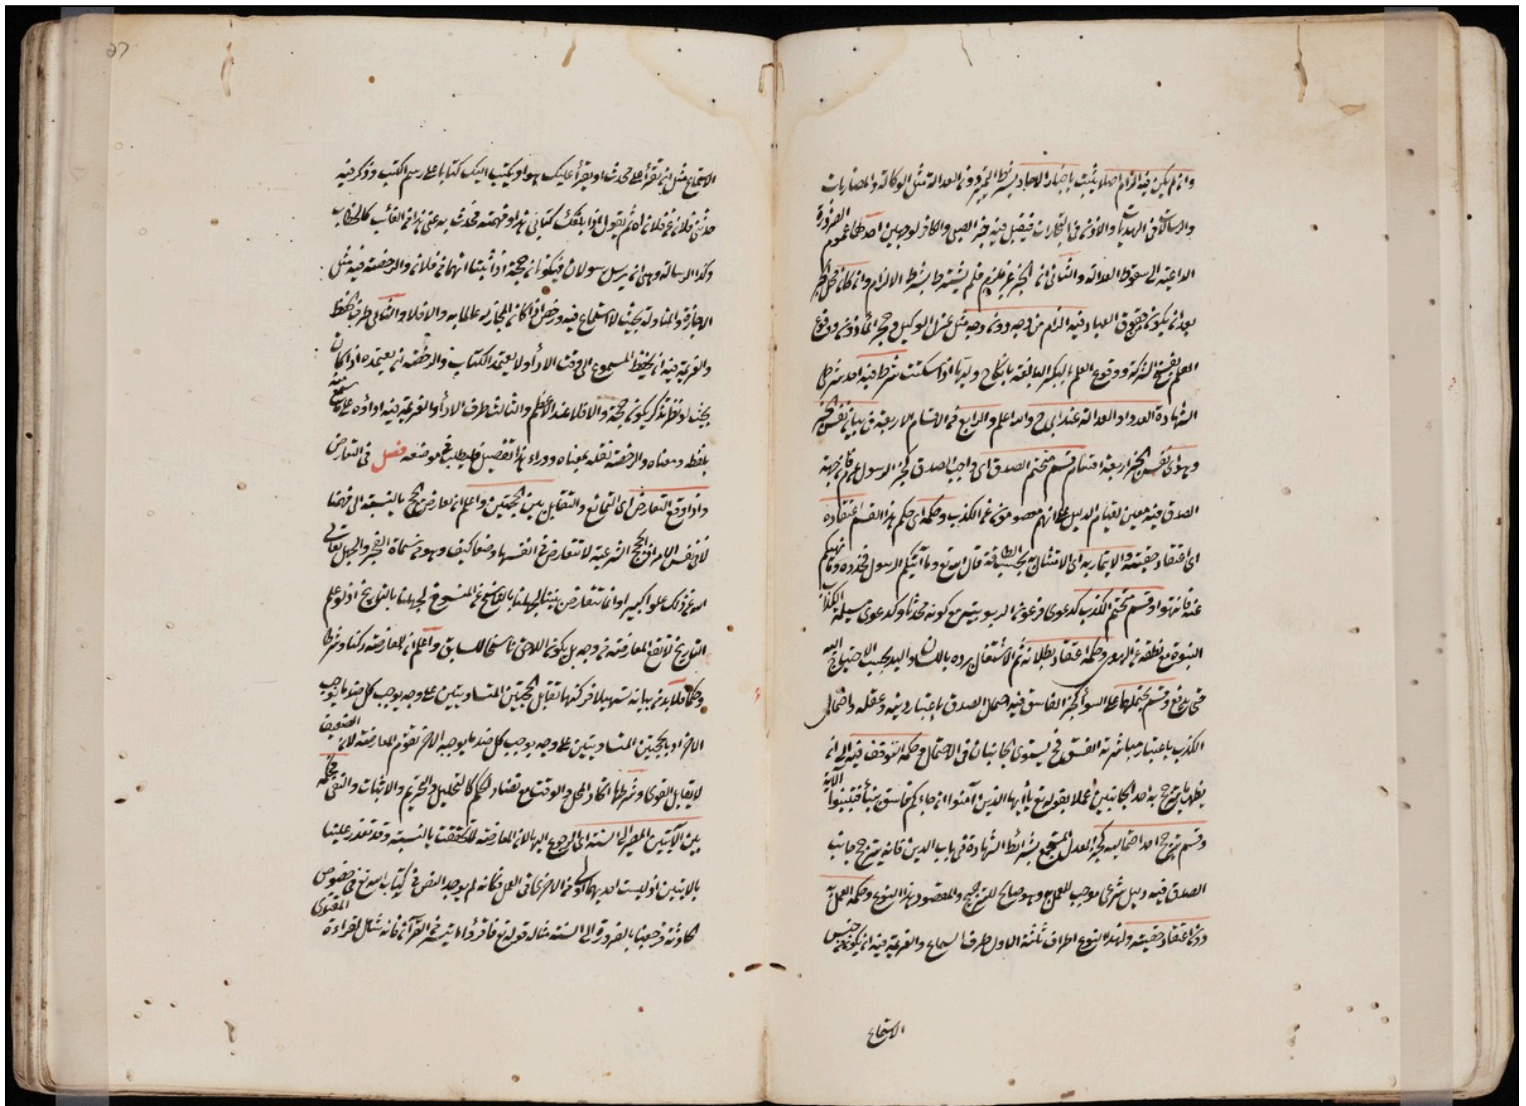 وان لم يكن فيه الزام اصلا يثبت باخبار الاحاد بشرط التمييز دون العدالة مثل الوكالة والمضاربات
والرسالات في الهدايات والاذن في التجارات فيقبل فيه خبر الصبي والكافر لوجهين احدهما عموم الضرورة
الداعية الى سقوط العدالة والثاني ان الخبر غير ملزم فلم يشترط شرط الالزام وان كان محل الخبر
بعد ان يكون من حقوق العباد فيه الزام من وجه دون وجه مثل عزل الوكيل وحجر المأذون ووقوع
العلم بفسخ الشركة ووقوع العلم للبكر البالغة بانكاح وليها اذا سكتت شرط فيه احد شرطي
الشهادة العدد او العدالة عند ابي ح والله اعلم والرابع من الاقسام الاربعة في بيان نفس الخبر
وهو اي نفس الخبر اربعة اقسام قسم متحتم الصدق اي واجب الصدق كخبر الرسول عم فان جهة
الصدق فيه معين لقيام الدليل على انهم معصومون عن الكذب وحكمه اي حكم هذا القسم اعتقاده
اي اعتقاد حقيته والايتمار به اي الامتثال به بحسب الطاقة قال الله تع وما آتيكم الرسول فخذوه وما نهيكم
عنه فانتهوا وقسم متحتم الكذب كدعوى فرعون الربوبية مع كونه محدثا وكدعوى مسيلمة الكذاب
النبوة مع وحكمه اعتقاد بطلانه ثم الاشتغال برده باللسان واليد بحسب الاحتياج اليه
حتى يدفع وقسم يحتملهما على السوأ كخبر الفاسق فيه احتمال الصدق باعتبار دينه وعقله واحتمال
الكذب باعتبار مباشرته الفسق فح يستوي الجانبان في الاحتمال وحكمه التوقف فيه الى ان
يظهر ما يترجح به احد الجانبين عملا بقوله تع يا أيها الذين آمنوا ان جاءكم فاسق بنبأ فتبينوا الآية
وقسم يترجح احد احتماليه كخبر العدل المستجمع بشرائط الشهادة في باب الدين فانه يترجح جانب
الصدق فيه دليل شرعي موجب للعمل به وهو صالح للترجيح والمقصود هذا النوع وحكمه العمل به
دون اعتقاد حقيته ولهذا النوع اطراف ثلثة الاول طرف السماع والعزيمة فيه ان يكون من جنس
الاستماع
الاستماع مثل ان تقرأ على محدث او يقرأ عليك هو او يكتب اليك كتابا على رسم الكتب وذكر فيه
حدثني فلان عن فلان الى ثم يقول اذا بلغك كتابي هذا وفهمته فحدث به عني فهذا من الغائب كالخطاب
وكذا الرسالة وهي ان يرسل رسولا فيكونان حجة اذا ثبتا انهما من فلان والرخصة فيه مثل
الاجازة والمناولة بحيث لا استماع فيه ورخص ان كان المجاز له عالما به والا فلا والثاني طرف الحفظ
والعزيمة فيه ان يحفظ المسموع الى وقت الادأ ولا يعتمد الكتاب والرخصة ان يعتمده اذا كان
بحيث لو نظر تذكر يكون حجة والا فلا عند الاعظم والثالث طرف الادأ والعزيمة فيه اداؤه على ما سمع منه
بلفظه ومعناه والرخصة نقله بمعناه ووراء هذا تفصيل فليطلب في موضعه فصل في التعارض
واذا وقع التعارض اي التمانع والتقابل بين الحجتين واعلم ان تعارض الحجج بالنسبة الى فهمنا
لا في نفس الامر اذ الحجج الشرعية لا تتعارض في انفسها وضعا كيف وهو من سمات العجز والجهل تعالى
الله عن ذلك علوا كبيرا وانما تتعارض بيننا لجهلنا بالناسخ عن المنسوخ لجهلنا بالتاريخ اذ لو علم
التاريخ لا تقع المعارضة من وجه بل يكون اللاحق ناسخا للسابق واعلم ان للمعارضة ركنا وشرطا
وحكما فلا بد من بيانه تسهيلا فركنها تقابل الحجتين المتساويتين على وجه يوجب كل ضد ما يوجب
الاخر اذ بالحجتين المتساويتين على وجه يوجب كل ضد ما يوجبه الاخر تقوم المعارضة لان الضعيف
لا يقابل القوي وشرطها اتحاد المحل والوقت مع تضاد الحكم كالتحليل والتحريم والاثبات والنفي فحكمه
بين الآيتين المصير الى السنة اي الرجوع اليها لان المعارضة لما تحققت بالنسبة وقد تعذر علينا
بالايتين اذ ليست احديهما اولى من الاخرى في العمل فكانه لم يوجد النص في كتاب الله تع في خصوص
الحادثة فرجعنا بالضرورة الى السنة مثاله قوله تع فاقرؤا ما تيسر من القرآن فانه شامل لقراءة المقتدي